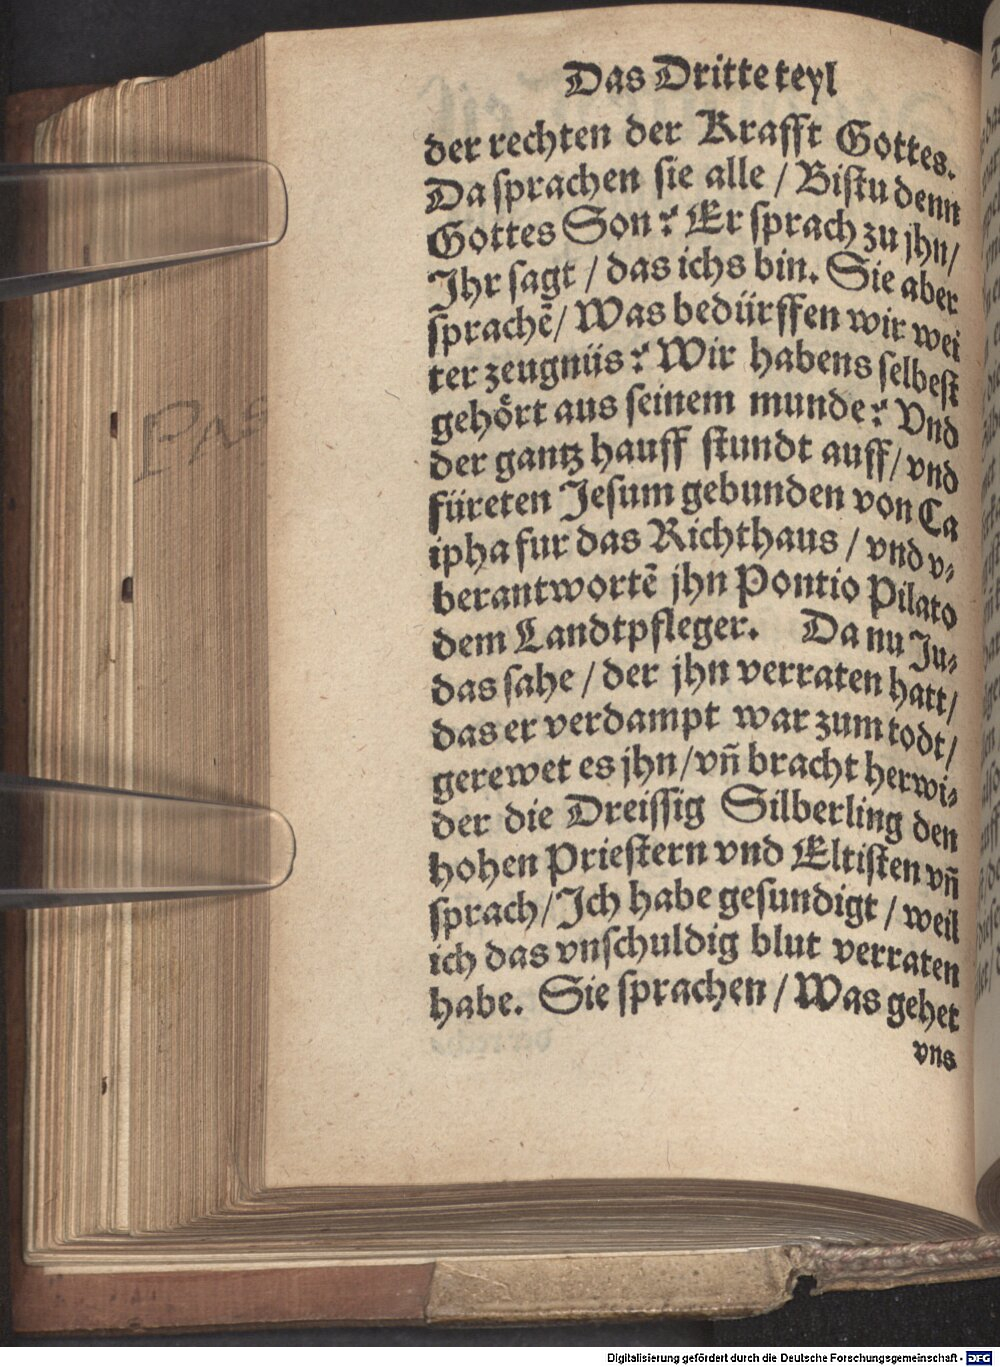 Das Dritte teyl
der rechten der Krafft Gottes.
Da sprachen sie alle / Bistu denn
Gottes Son? Er sprach zu jhn/
Ihr sagt / das ichs bin. Sie aber
sprachē/ Was bedürffen wir wei
ter zeugnüs? Wir habens selbest
gehört aus seinem munde? Vnd
der gantz hauff stundt auff/ vnd
füreten Jesum gebunden von Ca
ipha fur das Richthaus / vnd v⸗
berantwortē jhn Pontio Pilato
dem Landtpfleger. Da nu Ju⸗
das sahe / der jhn verraten hatt/
das er verdampt war zum todt/
gerewet es jhn/ vñ bracht herwi⸗
der die Dreissig Silberling den
hohen Priestern vnd Eltisten vñ
sprach/ Ich habe gesundigt / weil
ich das vnschuldig blut verraten
habe. Sie sprachen / Was gehet
vns
PAS
Digitalisierung gefördert durch die Deutsche Forschungsgemeinschaft - DFG